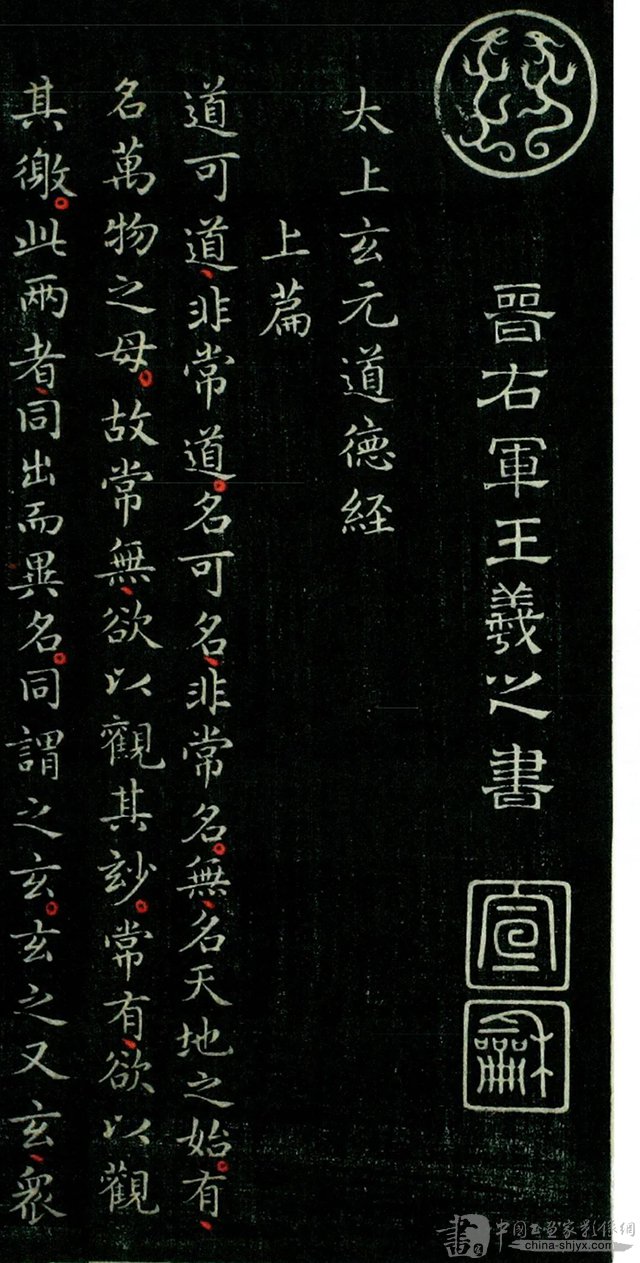 晉右軍王羲之書
宣
龢
太上玄元道德經
上篇
道可道、非常道。名可名、非常名。無、名天地之始。有、
名萬物之母。故常無、欲以觀其玅。常有、欲以觀
其徼。此兩者、同出而異名。同謂之玄。玄之又玄、眾
中国书画家影像網
china-shjyx.com